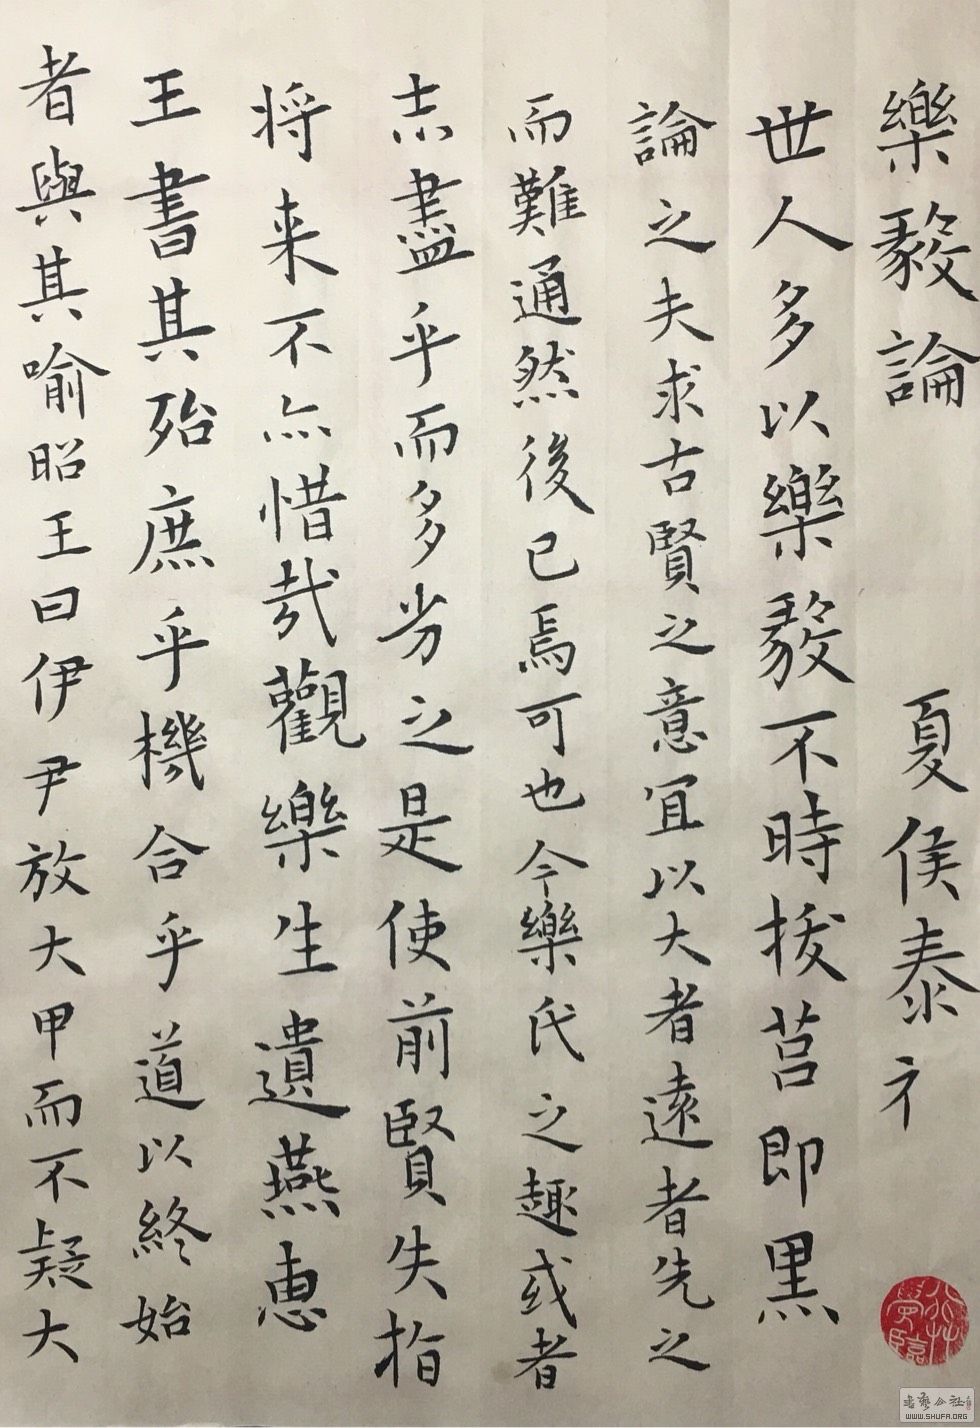 樂毅論 夏侯泰初
世人多以樂毅不時拔莒即黑
論之夫求古賢之意宜以大者遠者先之
而難通然後已焉可也今樂氏之趣或者
志盡乎而多劣之是使前賢失指
将来不亦惜哉觀樂生遺燕惠
王書其殆庶乎機合乎道以終始
者與其喻昭王曰伊尹放大甲而不疑大
書藝公社
WWW.SHUFA.ORG